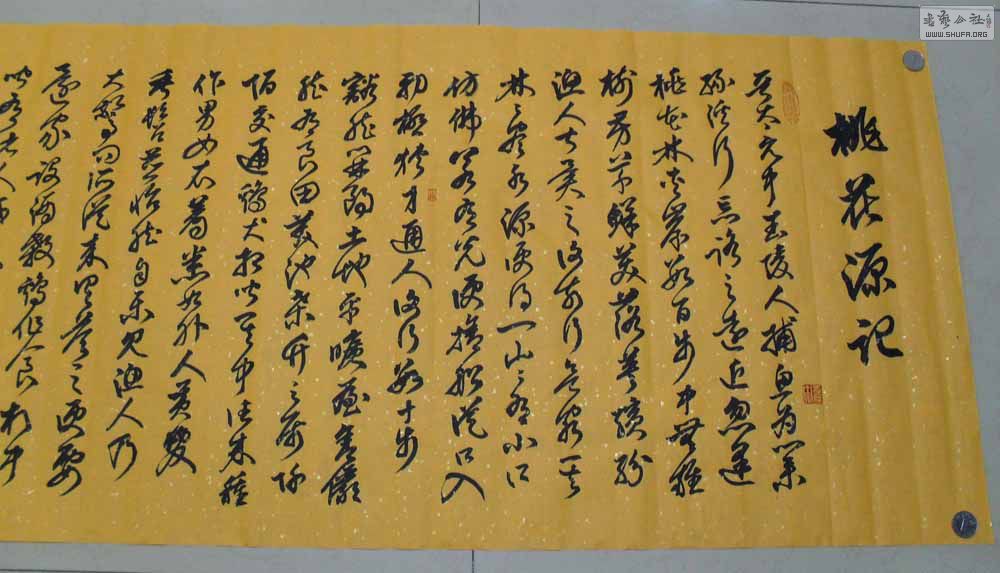 桃花源记
晋太元中武陵人捕鱼为业
缘溪行忘路之远近忽逢
桃花林夹岸数百步中无杂
树芳草鲜美落英缤纷
渔人甚异之复前行欲穷其
林林尽水源便得一山山有小口
仿佛若有光便舍船从口入
初极狭才通人复行数十步
豁然开朗土地平旷屋舍俨
然有良田美池桑竹之属阡
陌交通鸡犬相闻其中往来种
作男女衣着悉如外人黄发
垂髫并怡然自乐见渔人乃
大惊问所从来具答之便要
还家设酒杀鸡作食村中
闻有此人咸
书艺公社
WWW.SHUFA.ORG